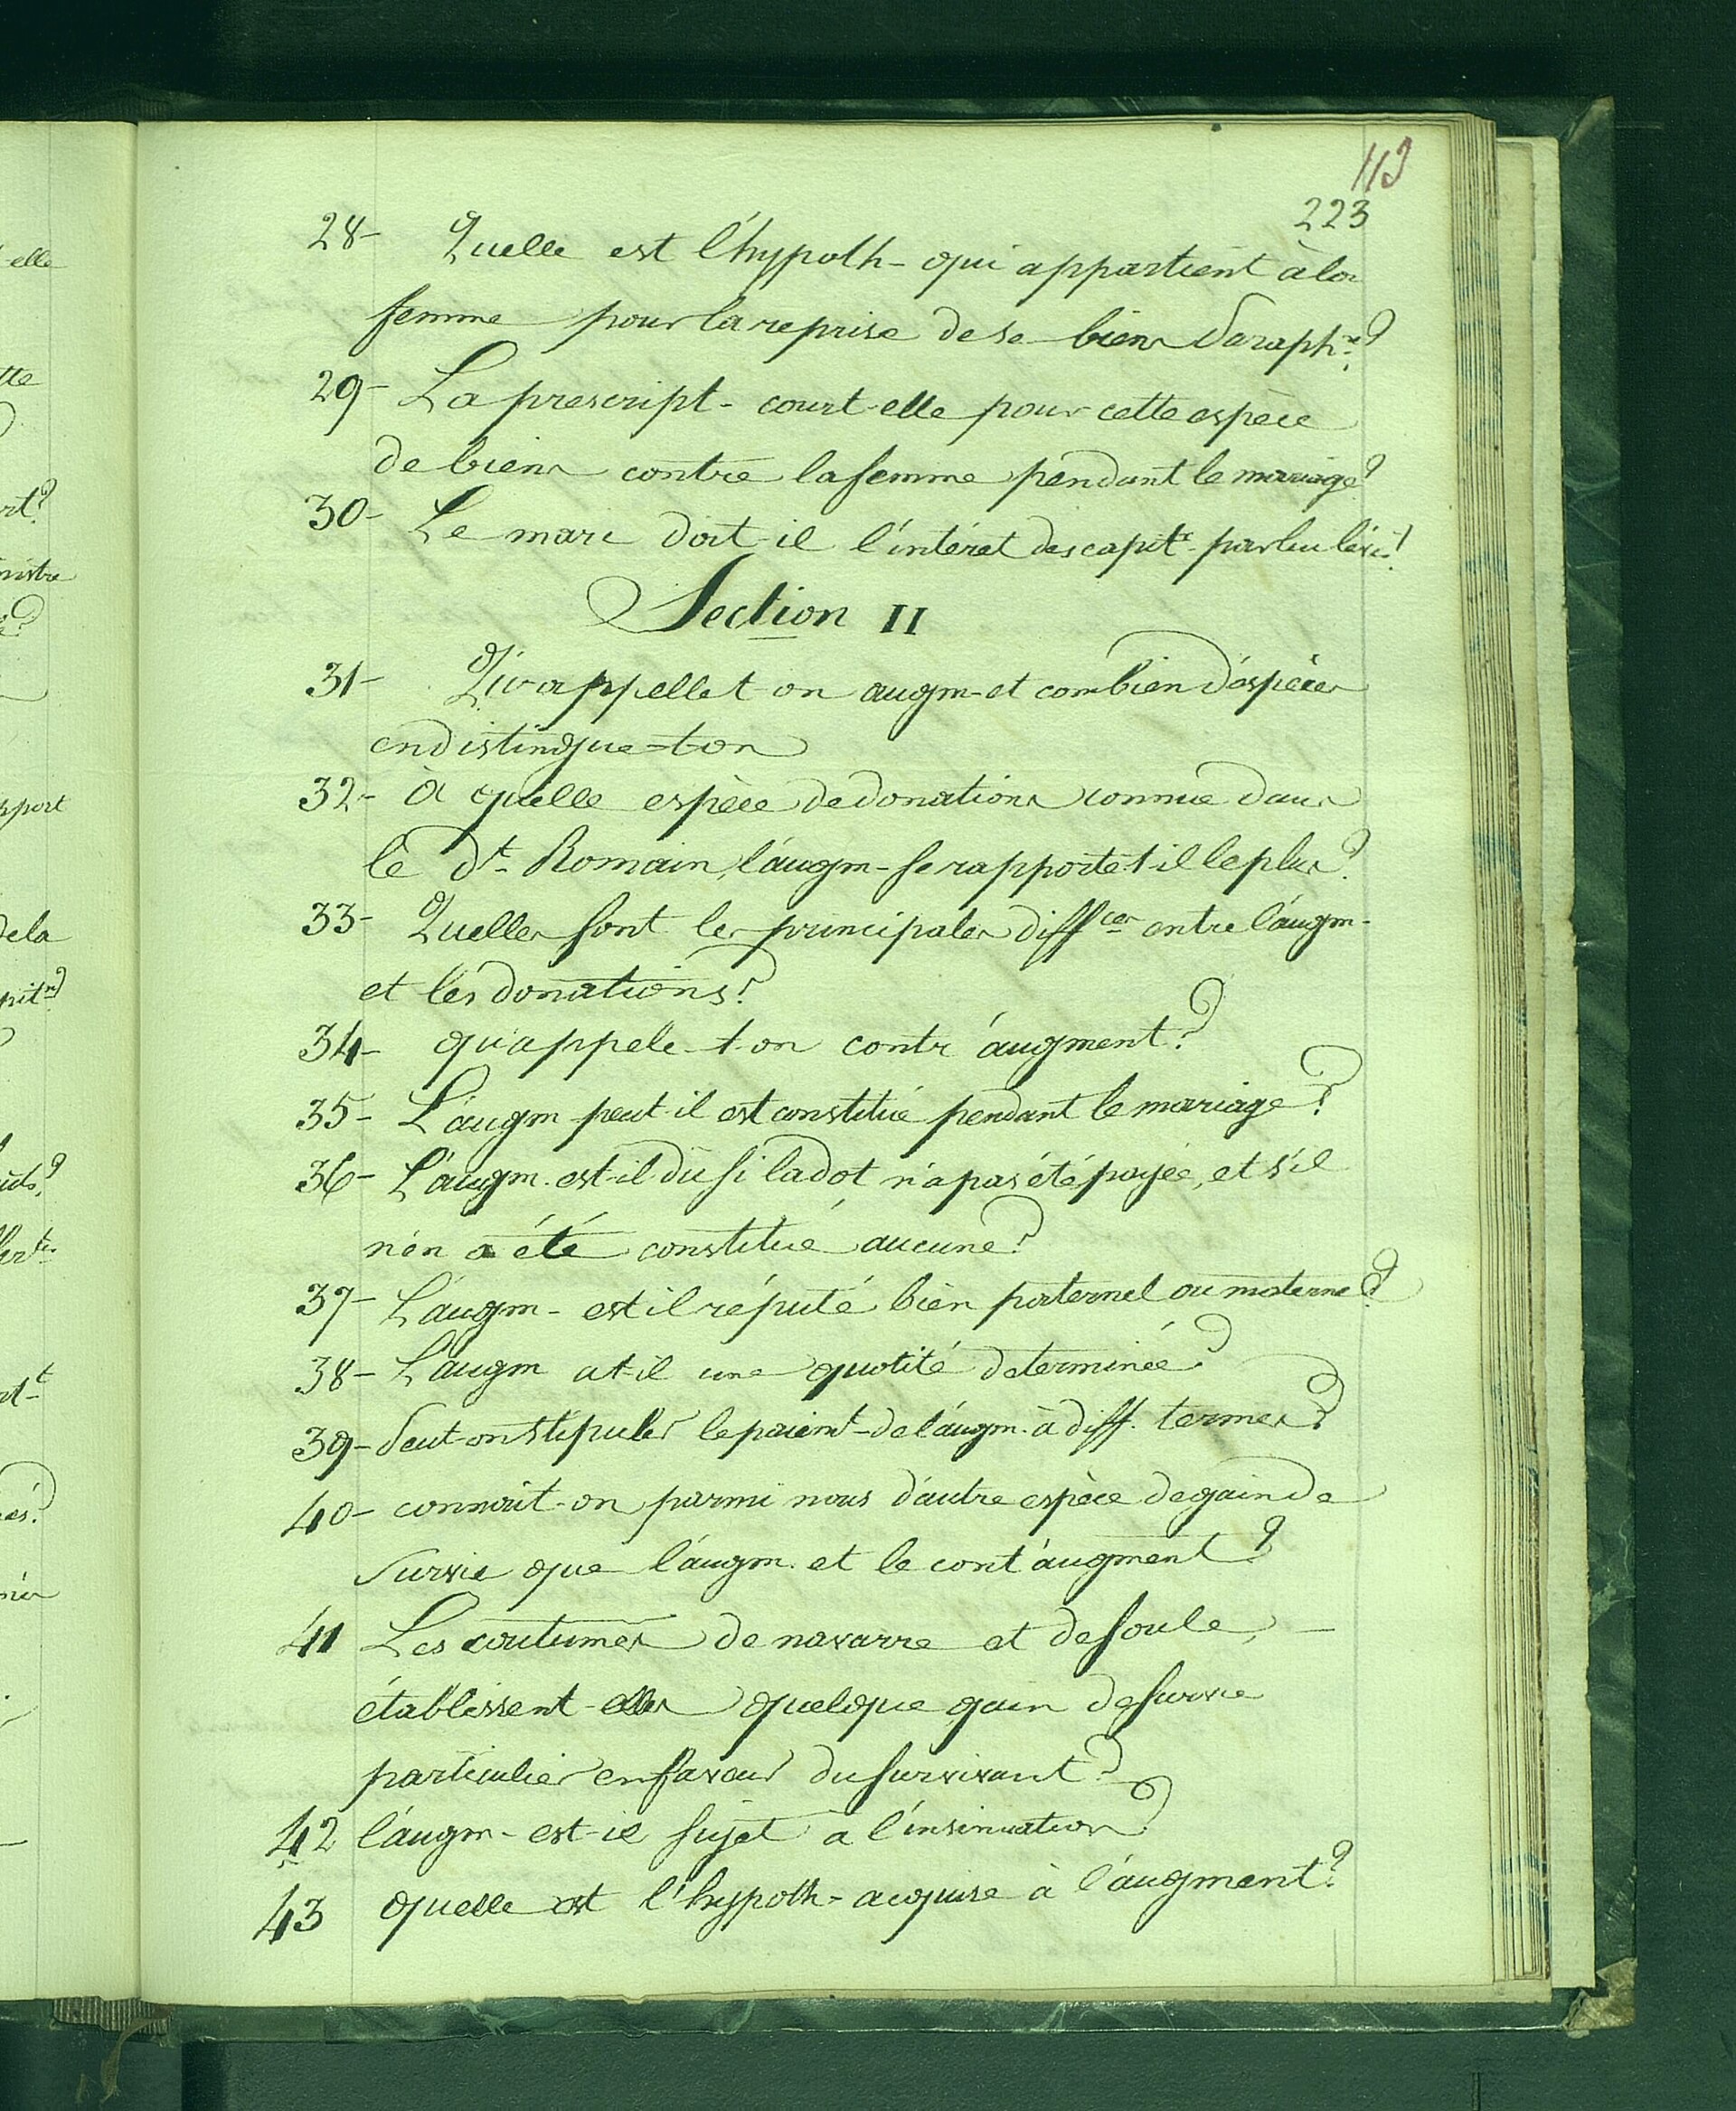 113
223
28- Quelle est l'hypoth- qui appartient à la
femme pour la reprise de se biens Paraph.?
29- La prescript- court-elle pour cette espèce
de biens contre la femme pendant le mariage?
30- Le mari doit-il l'intéret des capit. par lui
Section II
31- Qu'appellet-on augm- et combien d'éspèces
en distingue-ton
32- à quelle espèce de donations connue dans
le dt- Romain, l'augm- se rapporte t-il le plus?
33- Quelles sont les principales diffces entre l'augm-
et les donations?
34- qu'appele-t-on contr'augment?
35- L'augm peut-il est constitué pendant le mariage?
36- L'augm. est-il dû si la dot n'a pas été payée, et s'il
n'en a été constitué aucune?
37- L'augm- est il réputé bien paternel ou maternel?
38- L'augm at-il une quotité determinée?
39- Peut-on stipuler le paiemt- de l'augm. à diff. termes?
40- connoit-on parmi nous d'autre espèce de gain de
survie que l'augm. et le cont'augment?
41 Les coutumes de navarre et de soule, -
établissent-elles quelque gain de survie
particulier en faveur du survivant?
42 l'augm- est-il sujet a l'insinuation?
43 quelle est l'hypoth- acquise à l'augment?
elle
tte
rt?
nistre
pport
dela